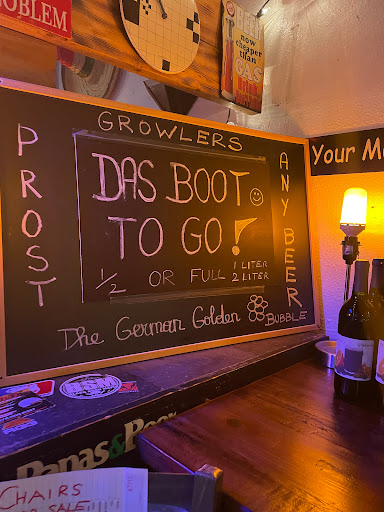 OBLEM
now
cheaper
than
GAS
Your M
GROWLERS
PROST
DAS BOOT
TO GO!
1/2 OR FULL
1 LITER
2 LITER
ANY BEER
The German Golden
BUBBLE
Papas&Beer
CHAIRS
SALE